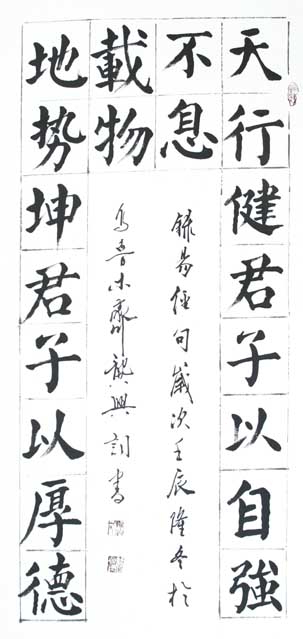 天行健君子以自強
不息
地势坤君子以厚德
載物
録易经句歲次壬辰隆冬於
乌鲁木齊龔興訓書